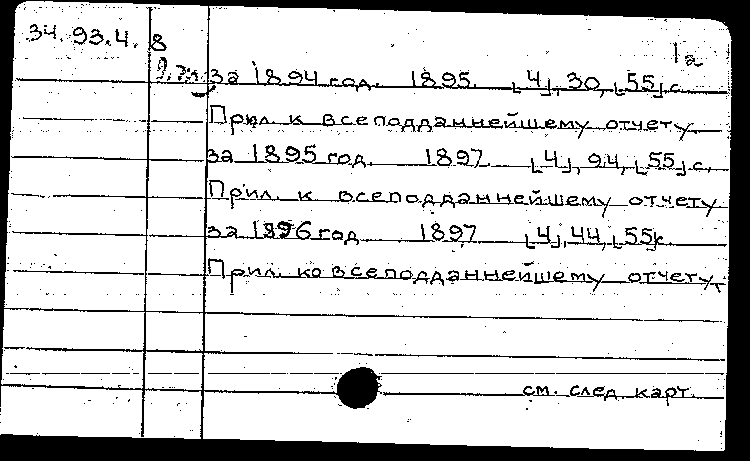 34.93.4.8
1а
за 1894 год. 1895. [4], 30, [55] с.
Прил. к всеподданнейшему отчету.
за 1895 год. 1897. [4], 94, [55] с.
Прил. к всеподданнейшему отчету
за 1896 год 1897 [4], 44, [55] с.
Прил. ко всеподданнейшему отчету.
см. след. карт.